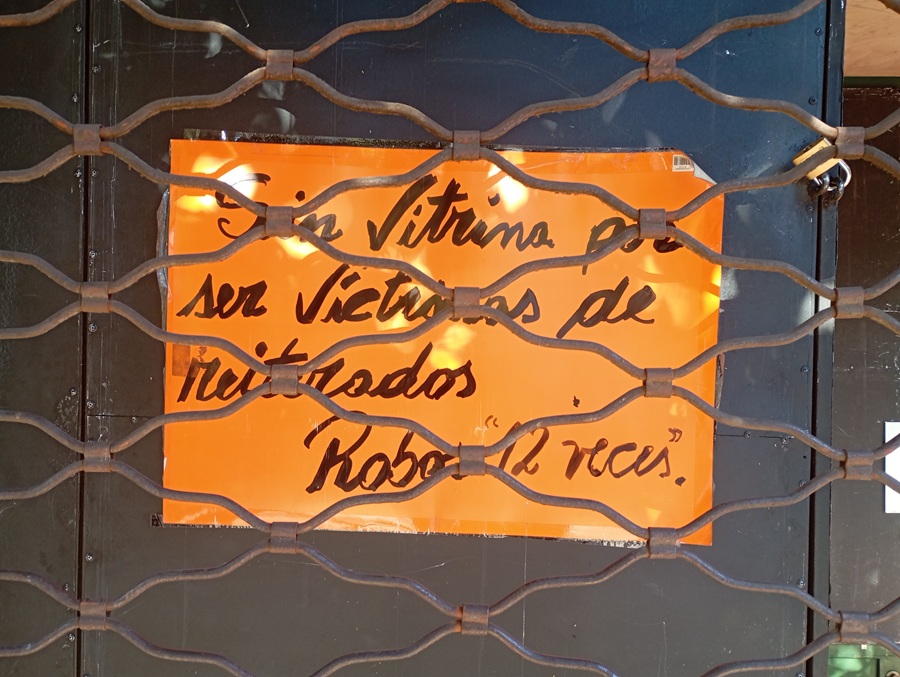 Sin Vitrina por
ser Victimas de
reiterados
Robos "12 veces".